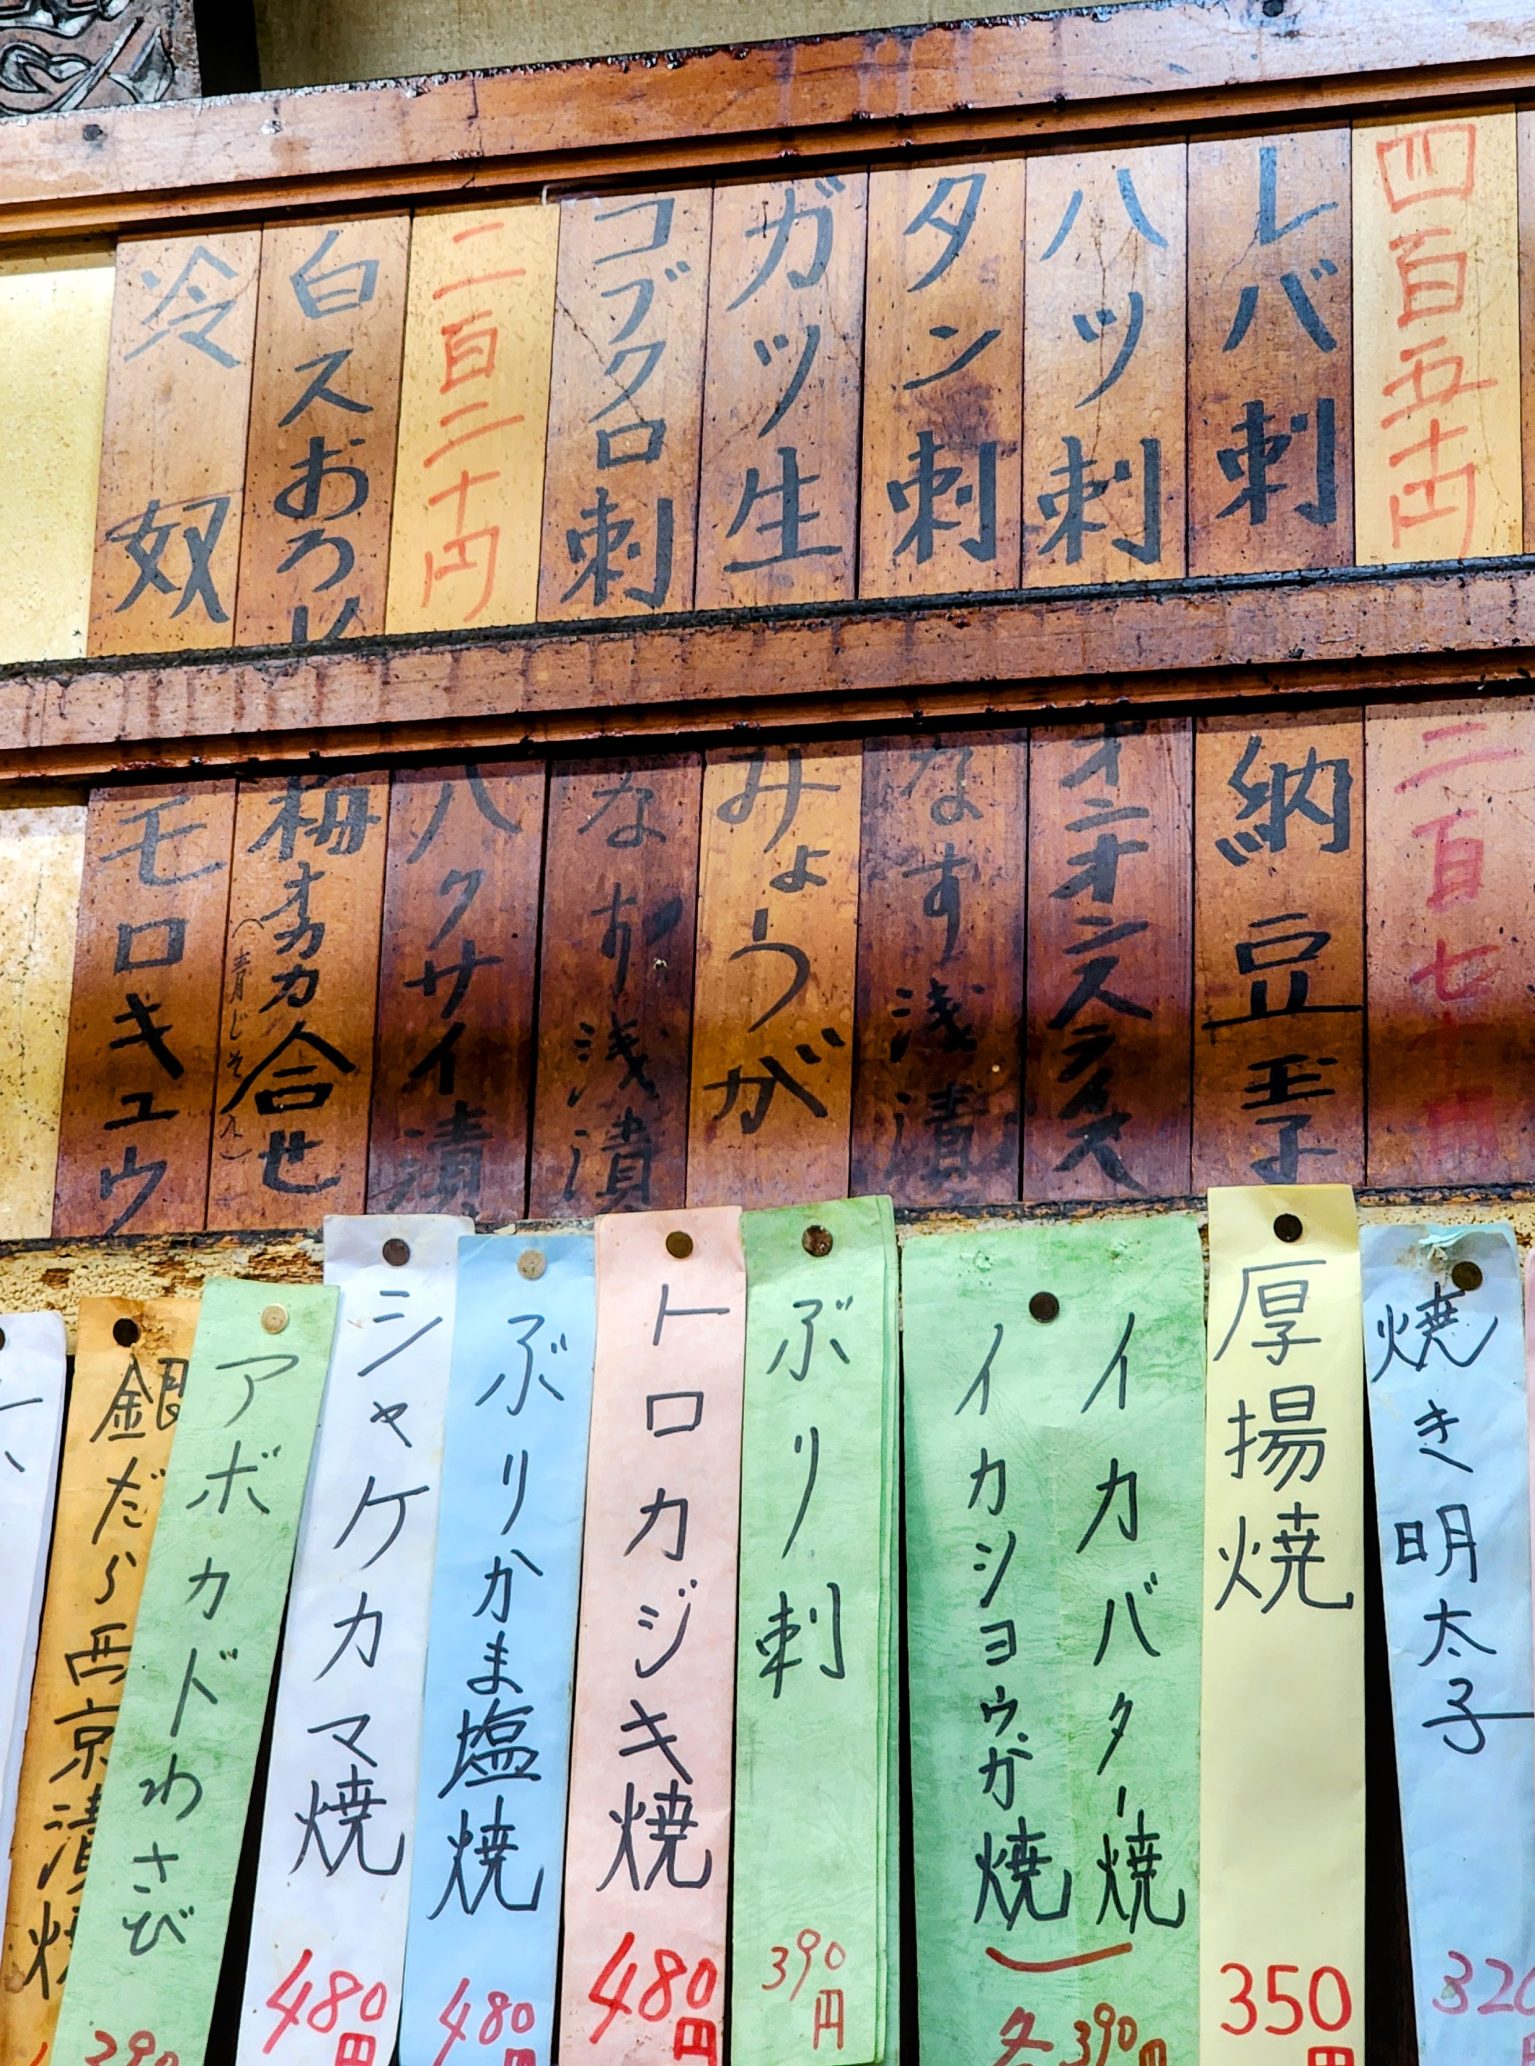 四百五十円
レバ刺
ハツ刺
タン刺
ガツ生
コブクロ刺
二百二十円
白スおろし
冷奴
二百七十円
納豆玉子
オニオンスライス
なす浅漬
みょうが
なす浅漬
ハクサイ漬
梅オカカ合せ
(青じそ入)
モロキュウ
焼き明太子
320
厚揚焼
350円
イカバター焼
イカショウガ焼
各390円
ぶり刺
390円
トロカジキ焼
480円
ぶりかま塩焼
480円
シャケカマ焼
480円
アボカドわさび
390
銀だら西京漬焼